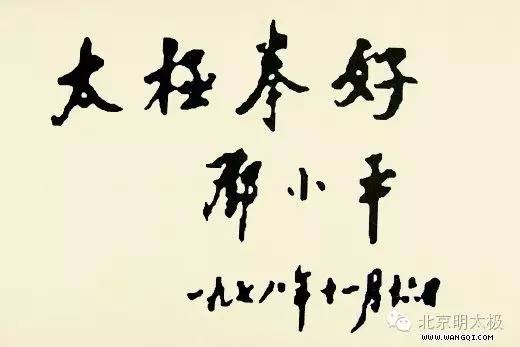 太极拳好
邓小平
一九七八年十一月十六日
北京明太极
WWW.WANGQI.COM